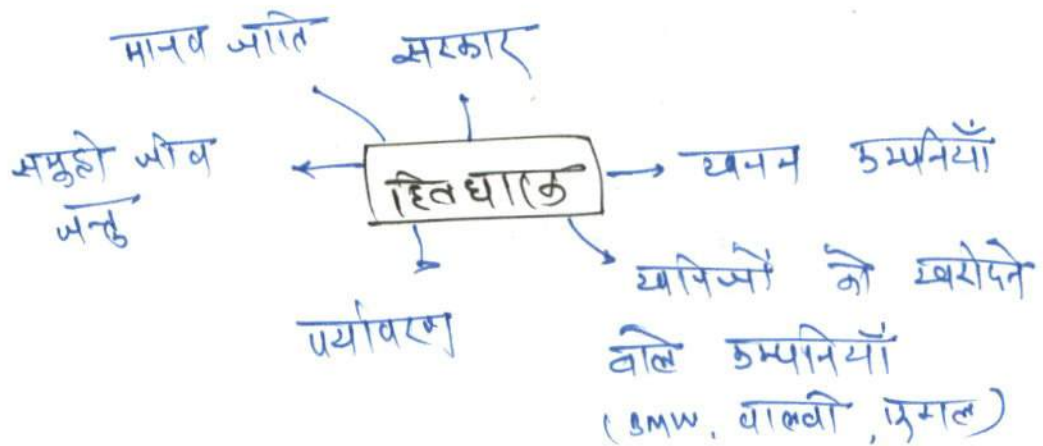 मानव जाति
सरकार
समुद्री जीव
जन्तु
हितधारक
खनन कम्पनियाँ
पर्यावरण
खनिजों को खरीदने
वाले कम्पनियाँ
(BMW, वाल्वो, गूगल)